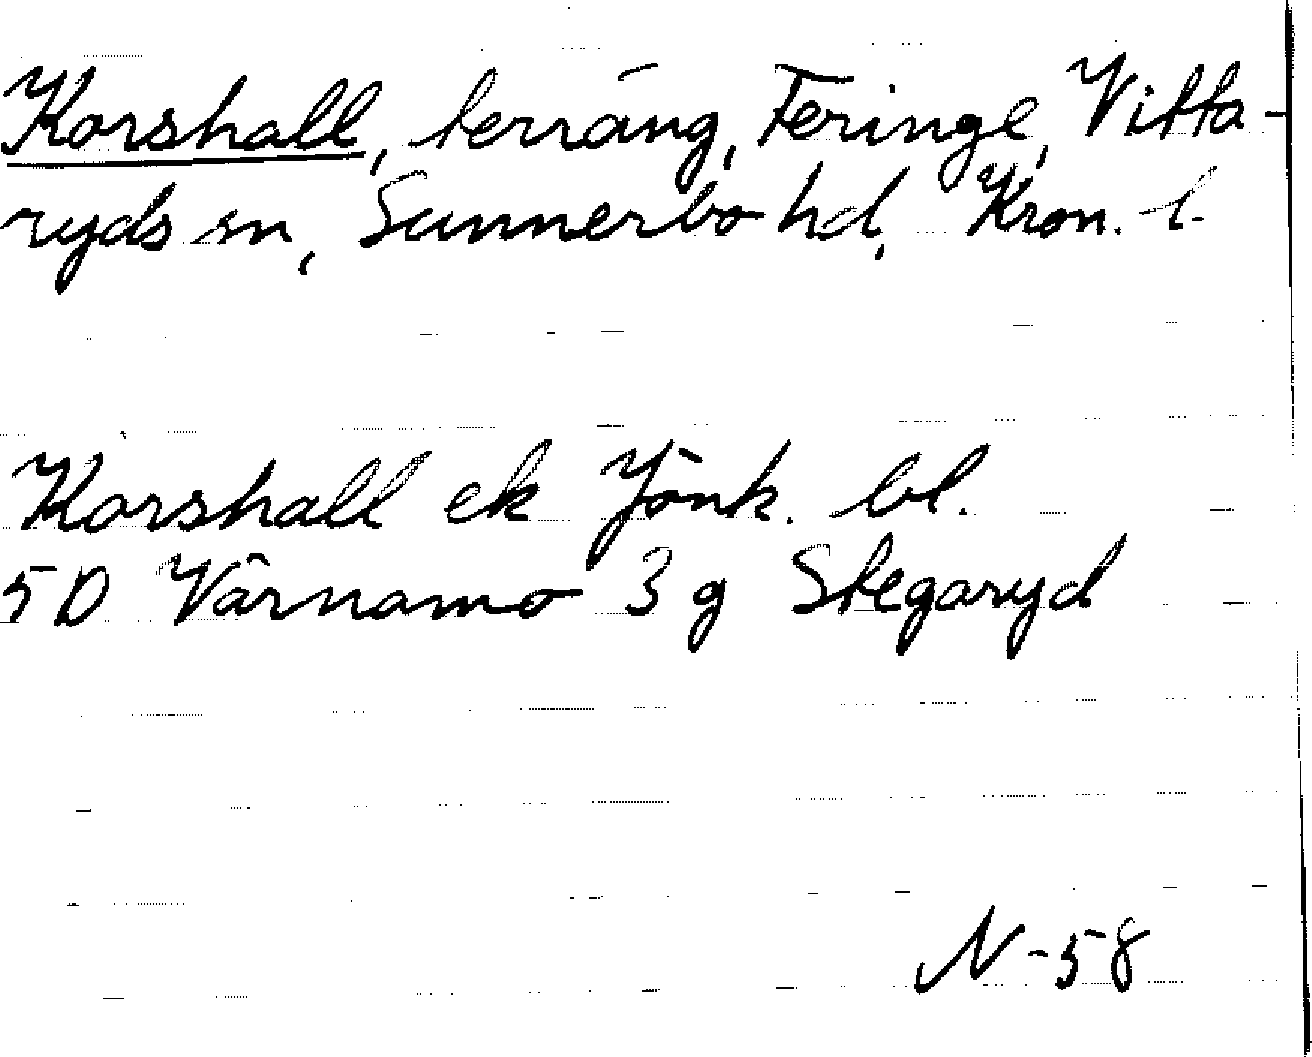 Korshall, terräng, Feringe, Vitta-
ryds sn, Sunnerbo hd, Kron. l.
Korshall ek Jönk. bl.
5D Värnamo 3 g Stegaryd
N-58